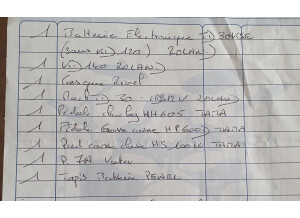 1 Batterie Electronique TD 30KSE
(sans VH 120) ROLAND
1 VH 1400 ROLAND
1 Casque
1 Rack 30 ROLAND
1 Pédale charley HH605 TAMA
1 Pédale Grosse caisse HP600 TAMA
1 Pied caisse claire HS 100 W TAMA
1 P. 7A Vater
1 Tapis Batterie PEARL